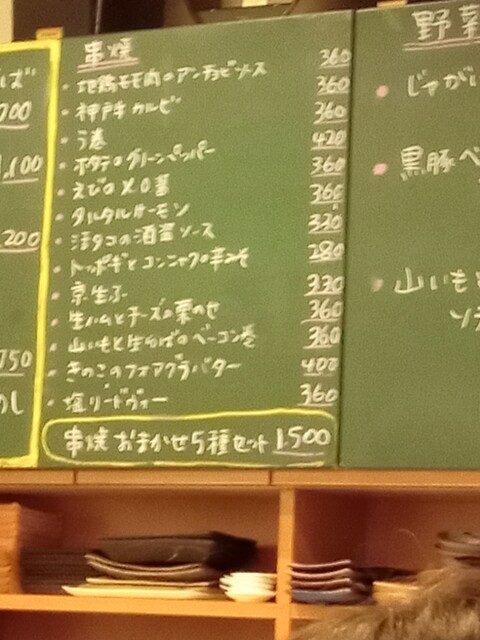 ば
700
1,100
,200
750
串焼
・地鶏モモ肉のアンチョビソース 360
・神戸牛カルビ 360
・う巻 360
・ホタテのグリーンペッパー 420
・えびのXO醤 360
・タルタルサーモン 360
・活タコの酒盗ソース 330
・トッポギとコンニャクの辛みそ 280
・京生ふ 330
・生ハムとチーズの栗のせ 360
・山いもと生ゆばのベーコン巻 360
・きのこのフォアグラバター 400
・塩リードヴォー 360
串焼おまかせ5種セット 1,500
野菜
・じゃがい
・黒豚べ
・山いもと
ソテ